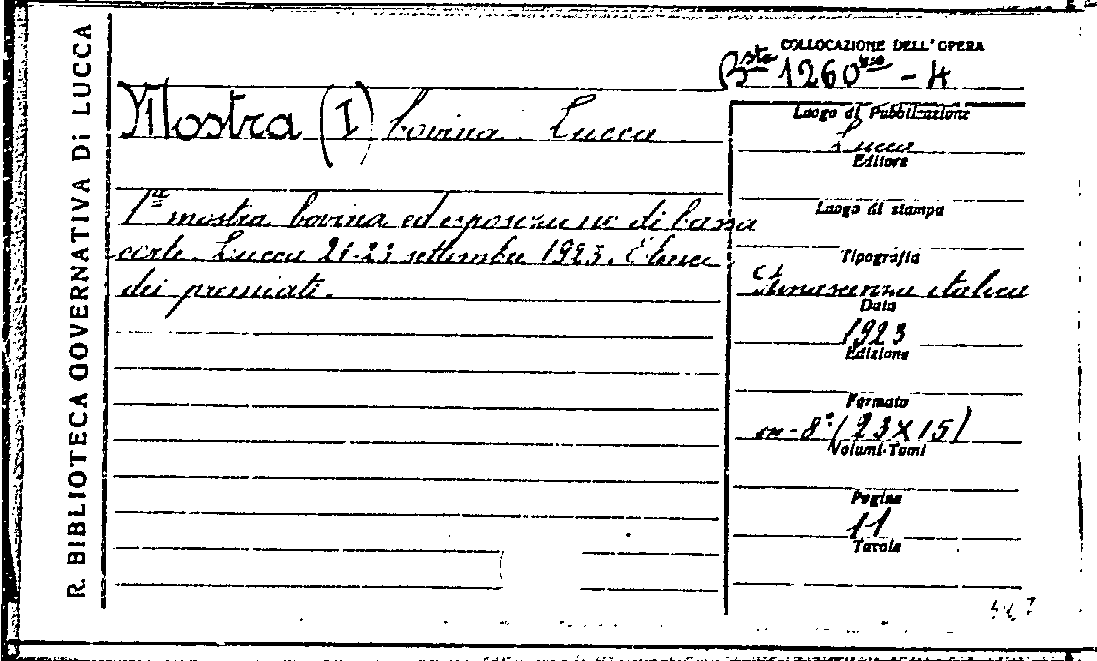 R. BIBLIOTECA GOVERNATIVA DI LUCCA
COLLOCAZIONE DELL'OPERA
Bsta 1260 - 4
Mostra (I) bovina. Lucca
1a mostra bovina ed esposizione di bassa
corte. Lucca 21-23 settembre 1923. Elenco
dei premiati.
Luogo di Pubblicazione
Lucca
Editore
Luogo di stampa
Tipografia
Rinascenza italica
Data
1923
Edizione
Formato
in-8° (23X15)
Volumi-Tomi
Pagine
11
Tavole